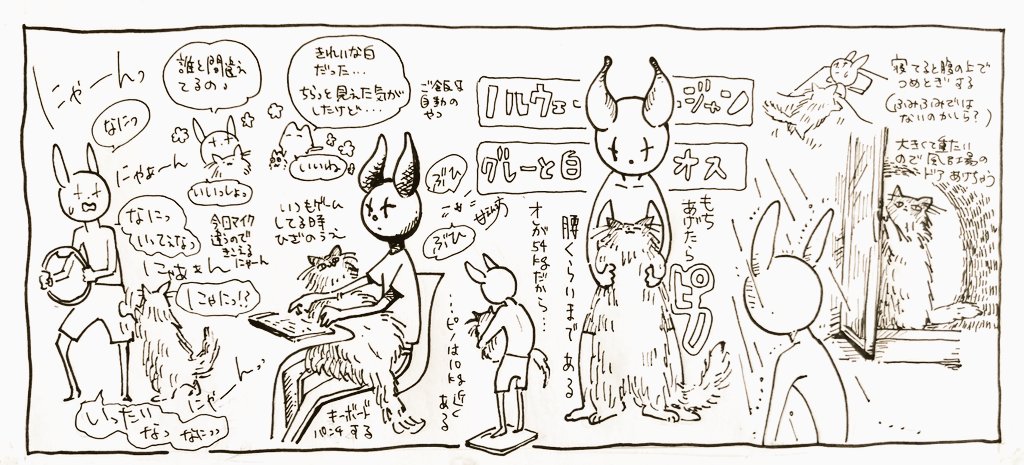 にゃーんっ
なにっ
誰と間違え
てるの♪
きれいな白
だった…
ちらっと見えた気が
したけど…
ご飯は
自動の
やつ
ノルウェ ジャン
グレーと白 オス
寝てると腹の上で
つめとぎする
(ふみふみでは
ないのかしら?)
大きくて重たい
ので風呂場の
ドアあけちゃう
にゃぁーん
いいっしょっ
いいね
ぶひ
ぶひ
なにっ
いってえなっ
今日マイク
違うので
きこえる
にゃーん
いつもゲーム
してる時
ひざのうえ
もち
あげたら
腰くらいまである
ピカ
オが54kgだから…
…ピノは10kg近く
ある
にゃぁぁん
にゃにっ!?
にゃーんっ
いったい
なっ なにっっ
キーボード
パンチする